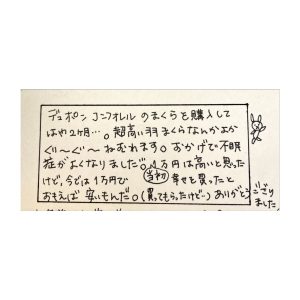 デュポン コンフォレル のまくらを購入して
はや2ヶ月…。超高い羽まくらなんかよか
ぐ〜ぐ〜ねむれます。おかげで不眠
症がよくなりました。1万円は高いと思った
けど、今では1万円で 当初 幸せを買ったと
おもえば 安いもんだ。(買ってもらったけど…) ありがとう
ござり
ました